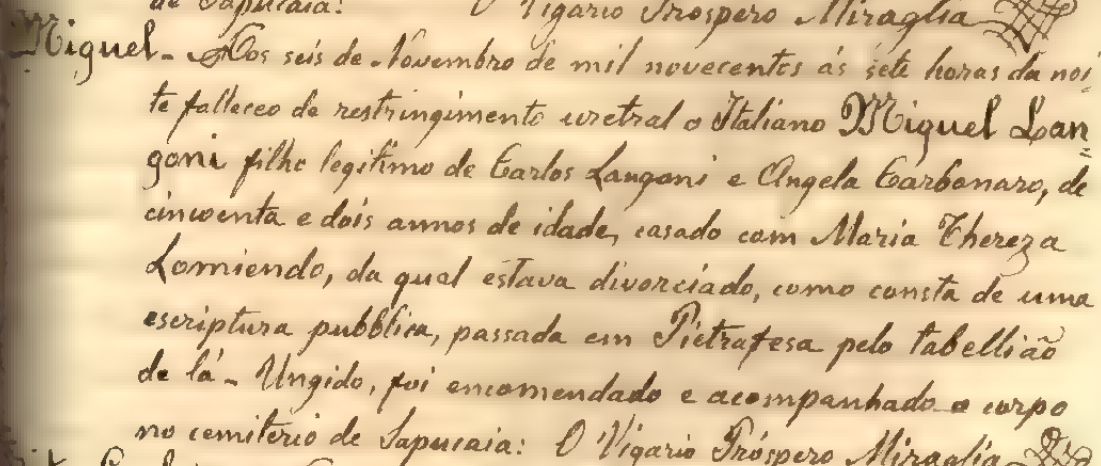 de Sapucaia: O Vigario Prospero Miraglia
Miguel - Aos seis de Novembro de mil novecentos ás sete horas da noi
te falleceo de restringimento uretral o Italiano Miguel Lan
goni filho legitimo de Carlos Langoni e Angela Carbonaro, de
cincoenta e dois annos de idade, casado com Maria Thereza
Lomiendo, da qual estava divorciado, como consta de uma
escriptura pubblica, passada em Pietrafesa pelo tabellião
de lá - Ungido, foi encomendado e acompanhado o corpo
no cemiterio de Sapucaia: O Vigario Próspero Miraglia